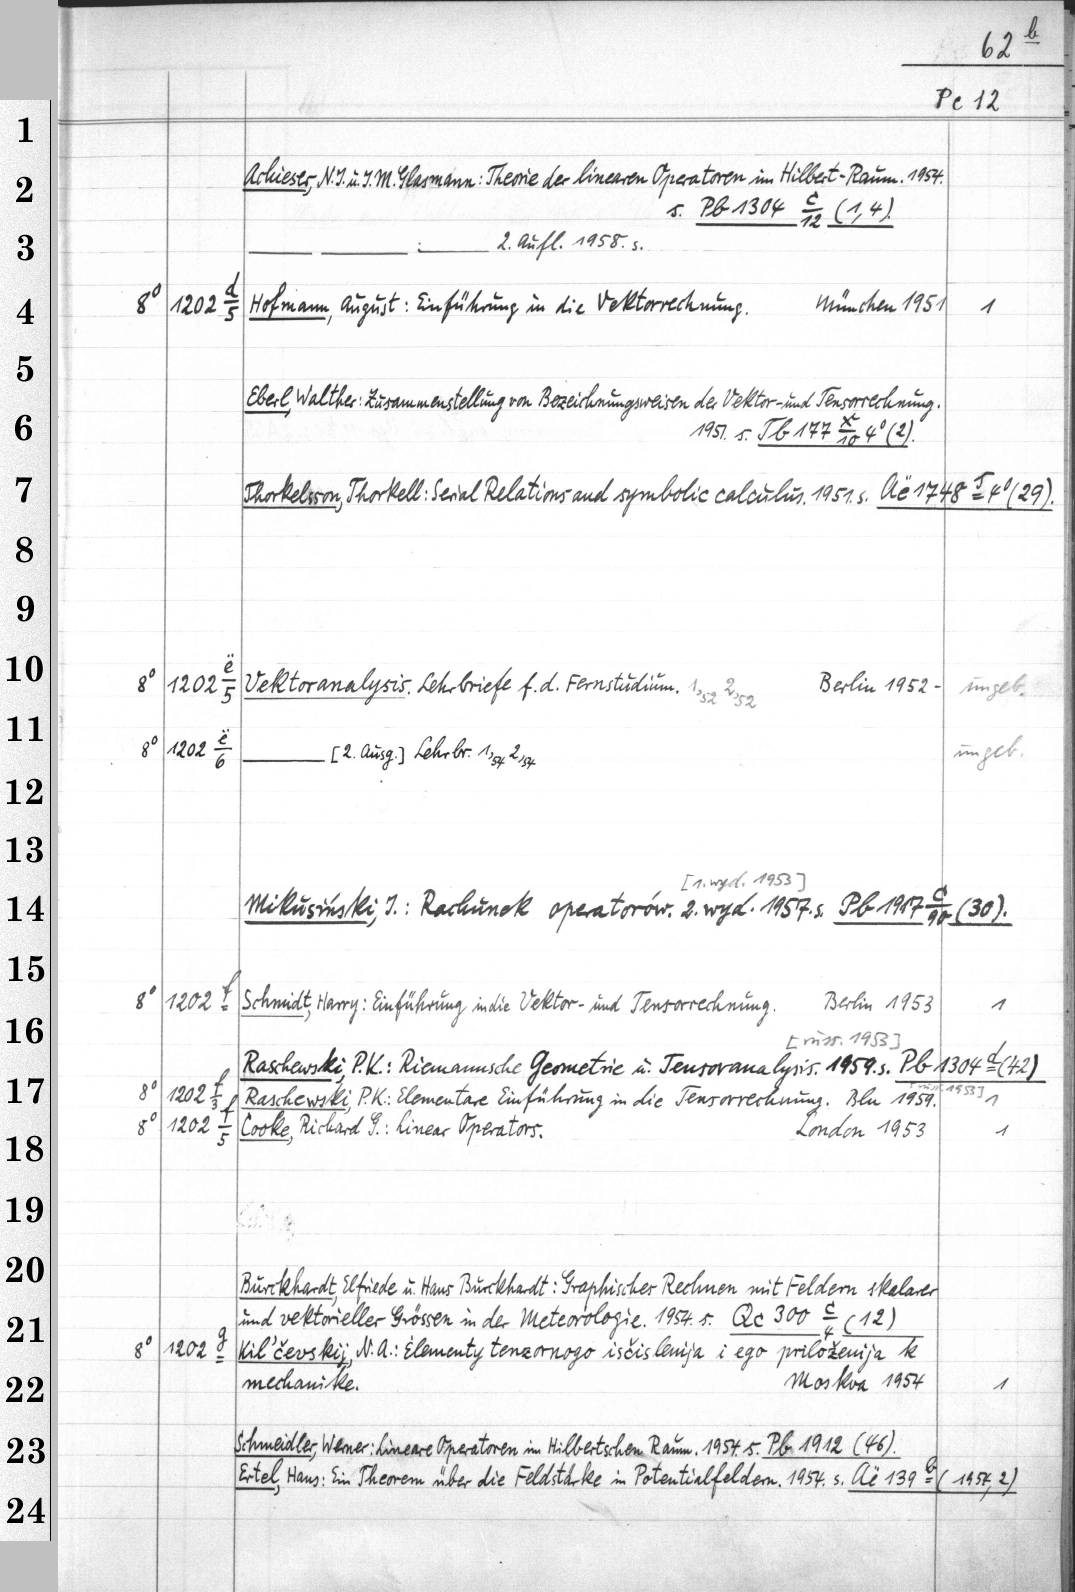 62 b
Pc 12
1
2
3
4
5
6
7
8
9
10
11
12
13
14
15
16
17
18
19
20
21
22
23
24
Achieser, N.J. u. J.M. Glasmann: Theorie der linearen Operatoren im Hilbert-Raum. 1954.
s. Pb 1304 c/12 (1,4).
2. Aufl. 1958. s.
8° 1202 d/5 Hofmann, August: Einführung in die Vektorrechnung. München 1951 1
Eberl, Walther: Zusammenstellung von Bezeichnungsweisen der Vektor- und Tensorrechnung.
1951. s. Tb 177 x/10 4° (2).
Thorkelsson, Thorkell: Serial Relations and symbolic calculus. 1951. s. Aë 1748 T 4° (29).
8° 1202 ë/5 Vektoranalysis. Lehrbriefe f. d. Fernstudium. 1,52 2,52 Berlin 1952- ungeb.
8° 1202 ë/6 [2. Ausg.] Lehrbr. 1,54 2,54 ungeb.
[1. wyd. 1953]
Mikusiński, J.: Rachunek operatorów. 2. wyd. 1957. s. Pb 1917 c/90 (30).
8° 1202 f Schmidt, Harry: Einführung in die Vektor- und Tensorrechnung. Berlin 1953 1
[russ. 1953]
Raschewski, P.K.: Riemannsche Geometrie u. Tensoranalysis. 1959. s. Pb 1304 d (42)
8° 1202 f/3 Raschewski, P.K.: Elementare Einführung in die Tensorrechnung. Bln 1959. [russ. 1953] 1
8° 1202 f/5 Cooke, Richard G.: Linear Operators. London 1953 1
Burckhardt, Elfriede u. Hans Burckhardt: Graphisches Rechnen mit Feldern skalarer
und vektorieller Grössen in der Meteorologie. 1954. s. Qc 300 c/4 (12)
8° 1202 g Kil'čevskij, N.A.: Elementy tenzornogo isčislenija i ego priloženija k
mechanike. Moskva 1954 1
Schmeidler, Werner: Lineare Operatoren im Hilbertschen Raum. 1954. s. Pb 1912 (46).
Ertel, Hans: Ein Theorem über die Feldstärke in Potentialfeldern. 1954. s. Aë 139 b (1954, 2)